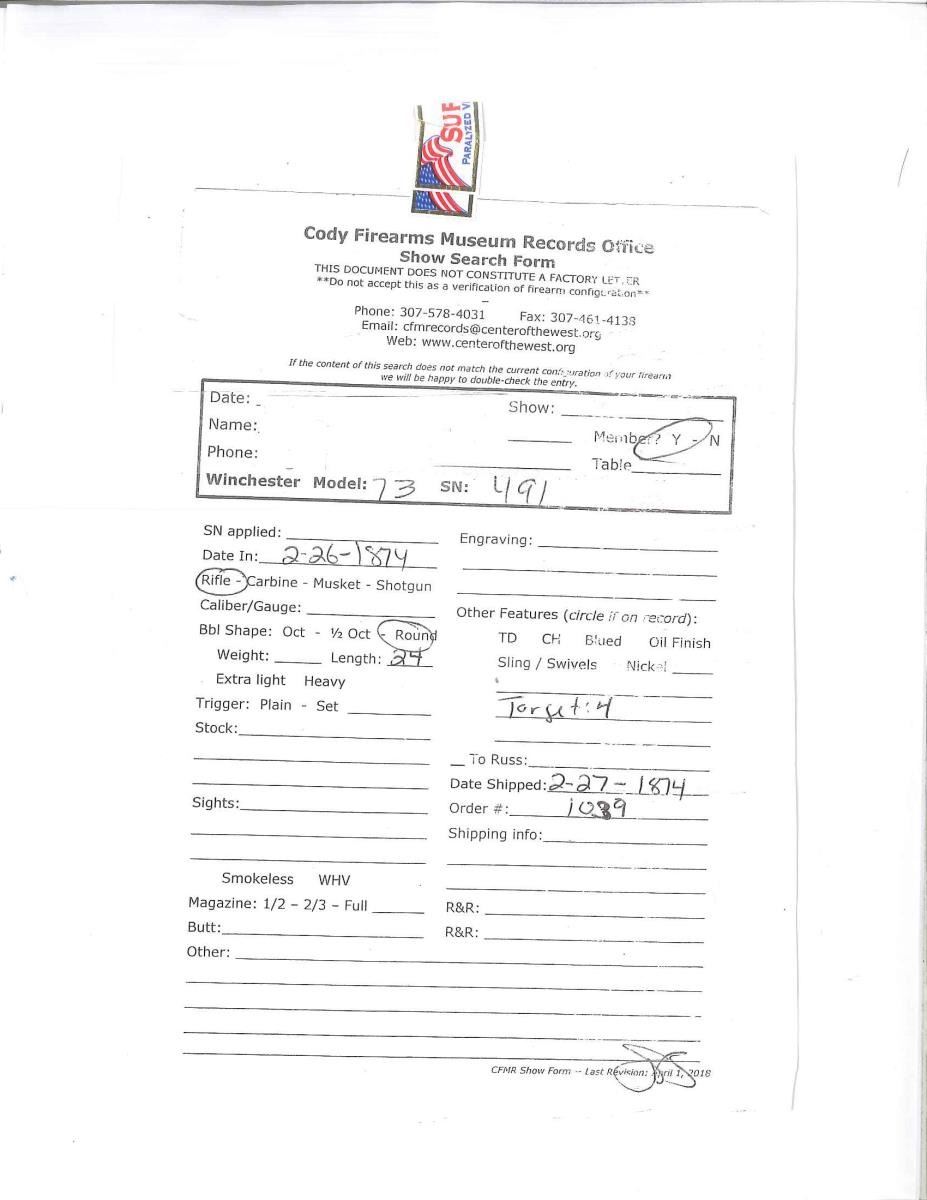 SUP
PARALYZED V
Cody Firearms Museum Records Office
Show Search Form
THIS DOCUMENT DOES NOT CONSTITUTE A FACTORY LETTER
**Do not accept this as a verification of firearm configuration**
Phone: 307-578-4031 Fax: 307-461-4138
Email: cfmrecords@centerofthewest.org
Web: www.centerofthewest.org
If the content of this search does not match the current configuration of your firearm
we will be happy to double-check the entry.
Date: Show:
Name: Member? Y - N
Phone: Table
Winchester Model: 73 SN: 491
SN applied: Engraving:
Date In: 2-26-1874
Rifle - Carbine - Musket - Shotgun
Caliber/Gauge: Other Features (circle if on record):
Bbl Shape: Oct - ½ Oct - Round TD CH Blued Oil Finish
Weight: Length: 24 Sling / Swivels Nickel
Extra light Heavy
Trigger: Plain - Set Target: 4
Stock:
To Russ:
Date Shipped: 2-27-1874
Sights: Order #: 1039
Shipping info:
Smokeless WHV
Magazine: 1/2 – 2/3 – Full R&R:
Butt: R&R:
Other:
CFMR Show Form -- Last Revision: April 1, 2018